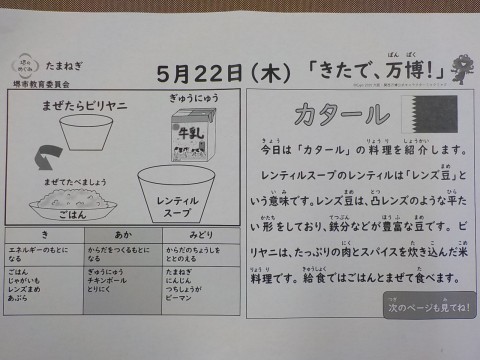 たまねぎ
堺市教育委員会
5月22日(木)
「きたで、万博!」
まぜたらビリヤニ
ぎゅうにゅう
牛乳
まぜてたべましょう
ごはん
レンティル
スープ
き
あか
みどり
エネルギーのもとに
なる
からだをつくるもとに
なる
からだのちょうしを
ととのえる
ごはん
じゃがいも
レンズまめ
あぶら
ぎゅうにゅう
チキンボール
とりにく
たまねぎ
にんじん
つちしょうが
ピーマン
カタール
今日は「カタール」の料理を紹介します。
レンティルスープのレンティルは「レンズ豆」と
いう意味です。レンズ豆は、凸レンズのような平た
い形をしており、鉄分などが豊富な豆です。ビ
リヤニは、たっぷりの肉とスパイスを炊き込んだ米
料理です。給食ではごはんとまぜて食べます。
次のページも見てね!